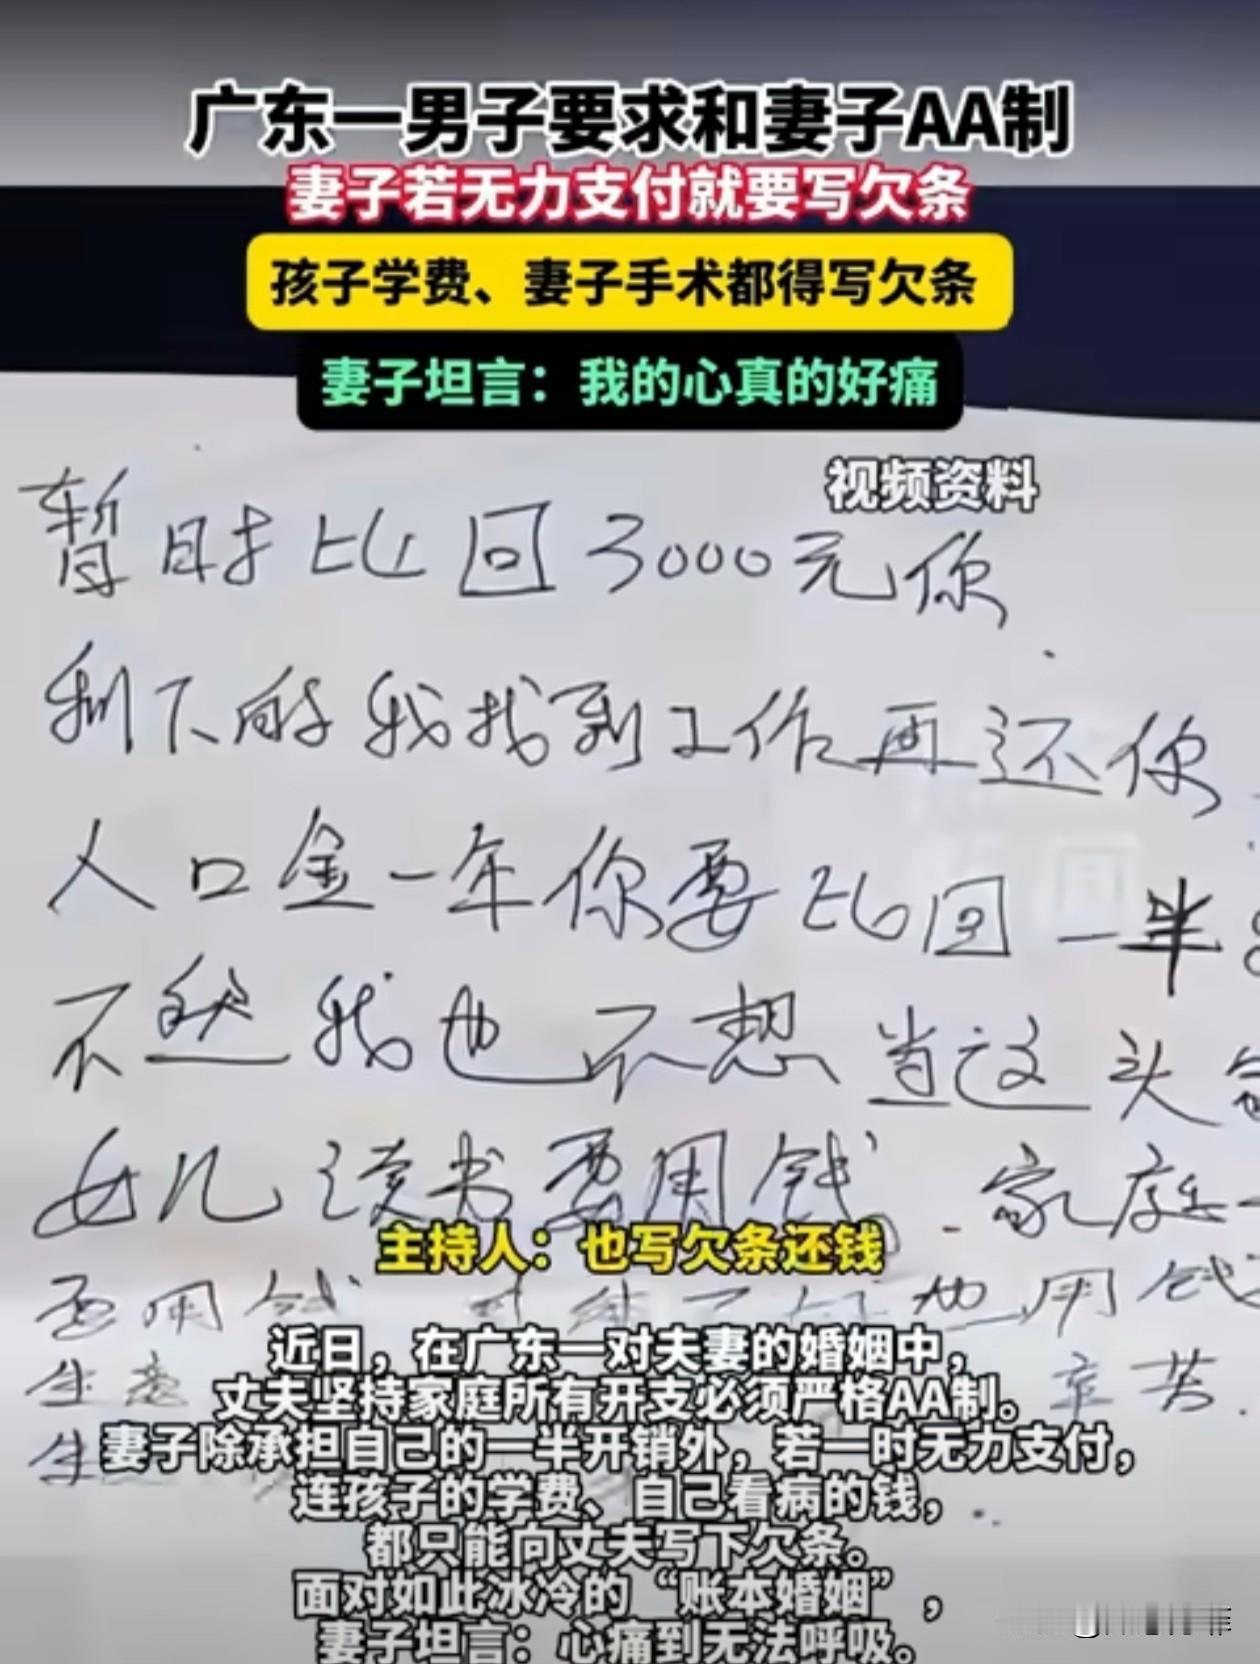 广东一男子要求和妻子AA制
妻子若无力支付就要写欠条
孩子学费、妻子手术都得写欠条
妻子坦言：我的心真的好痛
视频资料
暂时比回3000元你
剩下的我找到工作再还你
人口金一年你要比回一半
不然我也不想当这头
女儿读书要用钱。家庭
主持人：也写欠条还钱
要用钱 也用钱
生意 辛苦.
近日，在广东一对夫妻的婚姻中，
丈夫坚持家庭所有开支必须严格AA制。
妻子除承担自己的一半开销外，若一时无力支付，
连孩子的学费、自己看病的钱，
都只能向丈夫写下欠条。
面对如此冰冷的“账本婚姻”，
妻子坦言：心痛到无法呼吸。